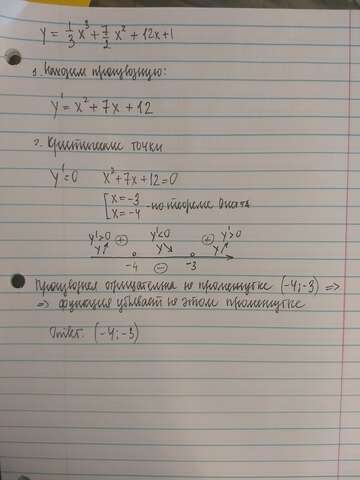 y = 1/3 x³ + 7/2 x² + 12x + 1
1. Находим производную:
y' = x² + 7x + 12
2. Критические точки
y' = 0 x² + 7x + 12 = 0
[x = -3 x = -4 - по теореме Виета
y' > 0 + y' < 0 + y' > 0
y ↗ y ↘ y ↗
-4 - -3
Производная отрицательна на промежутке (-4; -3) =>
=> функция убывает на этом промежутке
Ответ: (-4; -3)